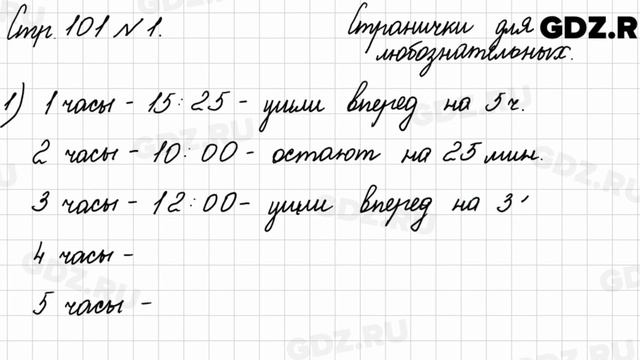 Стр. 101 № 1.
Странички для
любознательных.
GDZ.R
1) 1 часы - 15:25 - ушли вперед на 5 ч.
2 часы - 10:00 - остают на 25 мин.
3 часы - 12:00 - ушли вперед на 3
4 часы -
5 часы -
GDZ.RU
GDZ.RU
GDZ.RU
GDZ.RU